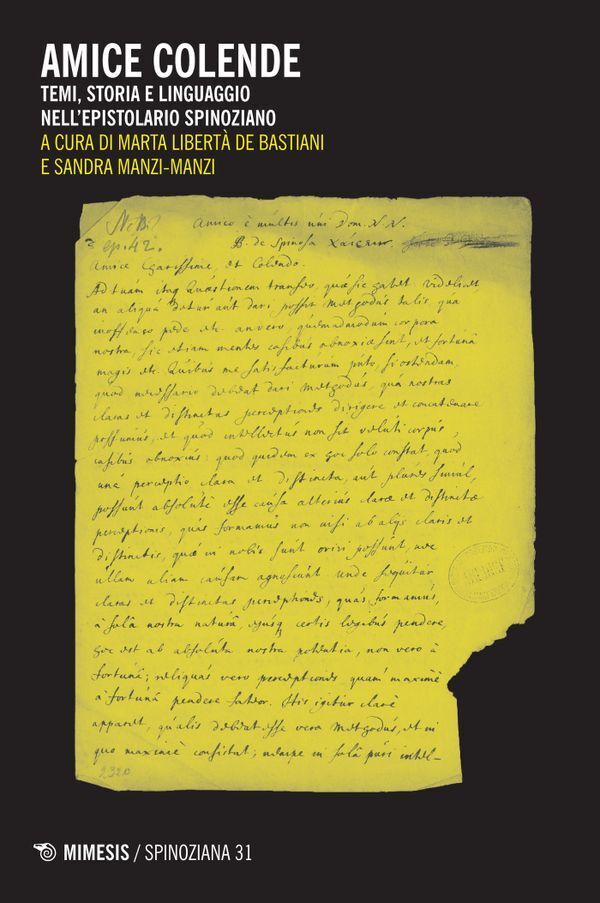 AMICE COLENDE
TEMI, STORIA E LINGUAGGIO
NELL'EPISTOLARIO SPINOZIANO
A CURA DI MARTA LIBERTÀ DE BASTIANI
E SANDRA MANZI-MANZI
ep: 42.
B. de Spinosa
Amice Charissime, et Colende.
Ad tuam itaq Quæstionem transeo, quæ sic habet videlicet
an aliqua detur aut dari possit Methodus talis, qua
inoffenso pede etc. an vero, quemadmodum corpora
nostra, sic etiam mentes casibus obnoxiæ sint, et fortunâ
magis etc. Quibus me satisfacturum puto, si ostendam,
quod necessario debeat dari Methodus, quâ nostras
claras et distinctas perceptiones dirigere et concatenare
possumus, et quod intellectus non sit veluti corpus,
casibus obnoxius: quod quidem ex hoc solo constat, quod
una perceptio clara et distincta, aut plures simul,
possunt absolutè esse causa alterius claræ et distinctæ
perceptionis, quas formamus non nisi ab alijs claris et
distinctis, quæ in nobis sunt oriri possunt, nec
ullam aliam causam agnoscunt unde sequitur
claras et distinctas perceptiones, quas formamus,
à solâ nostra naturâ, ejusq certis legibus pendere,
hoc est ab absolutâ nostra potentia, non vero à
fortunâ; reliquas vero perceptiones quam maximè
à fortunâ pendere fateor. His igitur clarè
apparet, qualis debeat esse vera Methodus, et in
quo maximè consistat; nempe in solâ puri intel-
9320
MIMESIS / SPINOZIANA 31